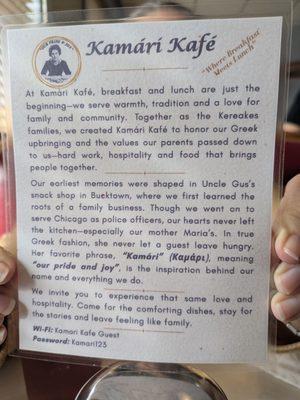 "OUR PRIDE & JOY"
Kamári Kafé
"Where Breakfast
Meets Lunch"
At Kamári Kafé, breakfast and lunch are just the
beginning—we serve warmth, tradition and a love for
family and community. Together as the Kereakes
families, we created Kamári Kafé to honor our Greek
upbringing and the values our parents passed down
to us—hard work, hospitality and food that brings
people together.
Our earliest memories were shaped in Uncle Gus's
snack shop in Bucktown, where we first learned the
roots of a family business. Though we went on to
serve Chicago as police officers, our hearts never left
the kitchen—especially our mother Maria's. In true
Greek fashion, she never let a guest leave hungry.
Her favorite phrase, "Kamári" (Καμάρι), meaning
"our pride and joy", is the inspiration behind our
name and everything we do.
We invite you to experience that same love and
hospitality. Come for the comforting dishes, stay for
the stories and leave feeling like family.
Wi-Fi: Kamari Kafe Guest
Password: Kamari123